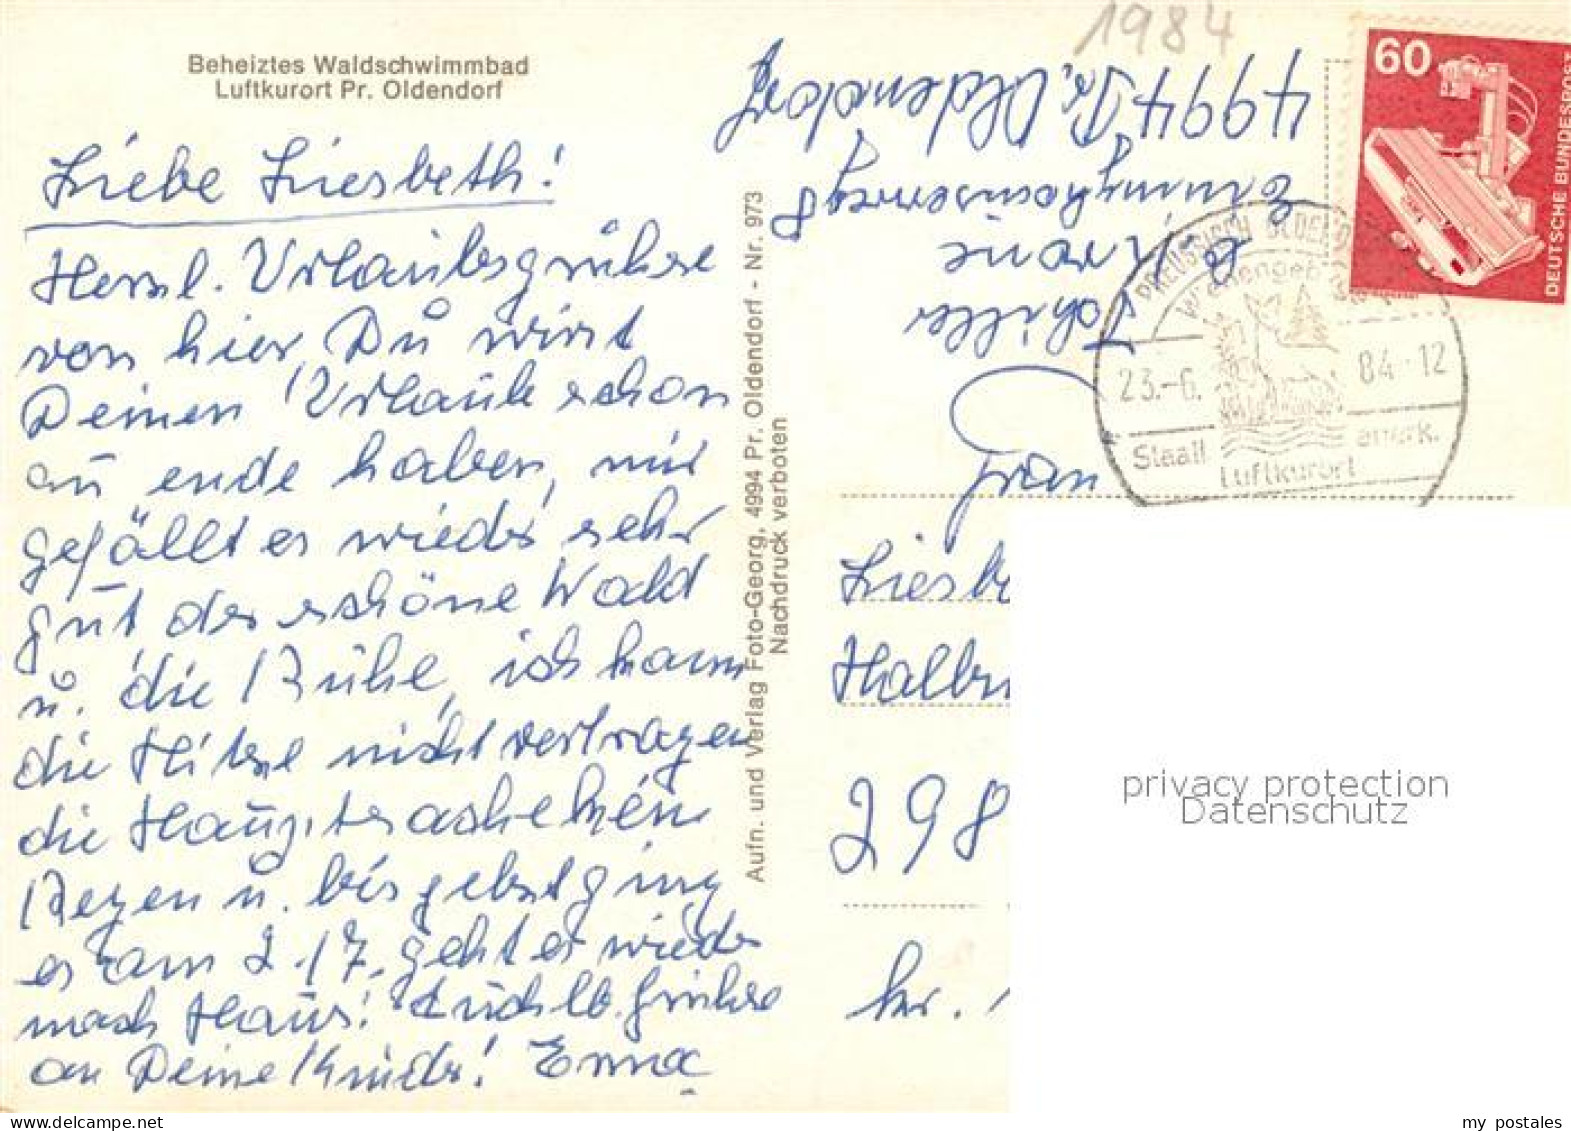 1984
Beheiztes Waldschwimmbad
Luftkurort Pr. Oldendorf
60
DEUTSCHE BUNDESPOST
Liebe Liesbeth!
Herzl. Urlaubsgrüße
von hier, Du wirst
Deinen Urlaub schon
zu ende haben, mir
gefällt es wieder sehr
gut der schöne Wald
u. die Ruhe, ich kann
die Hitze nicht vertragen
die Hauptsache kein
Regen u. bis jetzt ging
es am 2./7. geht es wieder
nach Haus! Grüße
an Deine Kinder! Erna
Aufn. und Verlag Foto-Georg, 4994 Pr. Oldendorf - Nr. 973
Nachdruck verboten
4994 Pr. Oldendorf
8
PREUSSISCH OLDENDORF
23.-6. 84-12
Staatl. anerk.
Luftkurort
Frau
Liesb
Halbr
298
Kr.
privacy protection
Datenschutz
my postales